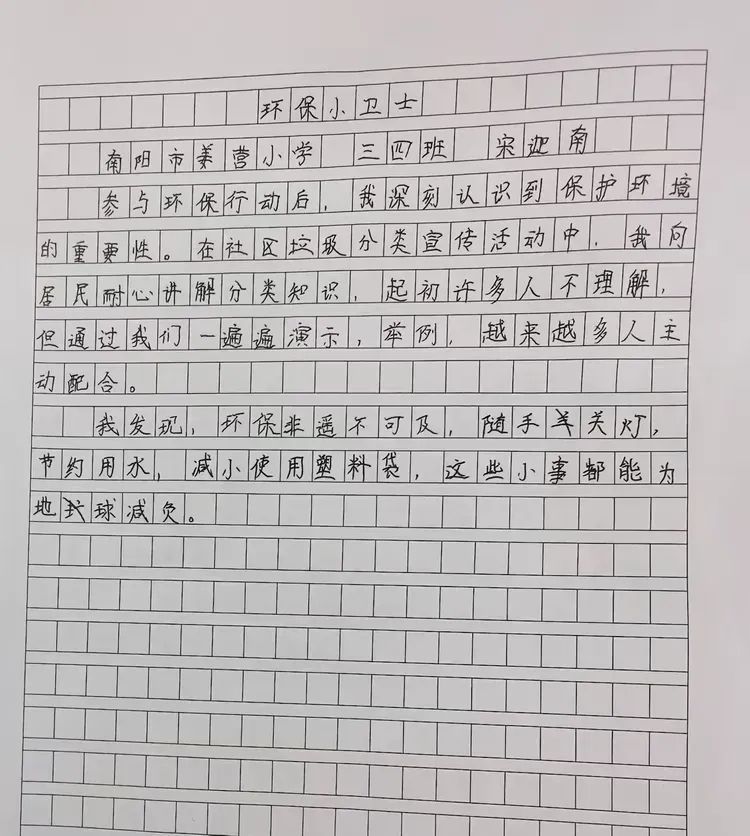 环保小卫士
南阳市姜营小学 三四班 宋迦南
参与环保行动后，我深刻认识到保护环境
的重要性。在社区垃圾分类宣传活动中，我向
居民耐心讲解分类知识，起初许多人不理解，
但通过我们一遍遍演示，举例，越来越多人主
动配合。
我发现，环保非遥不可及，随手关灯，
节约用水，减小使用塑料袋，这些小事都能为
地球减负。